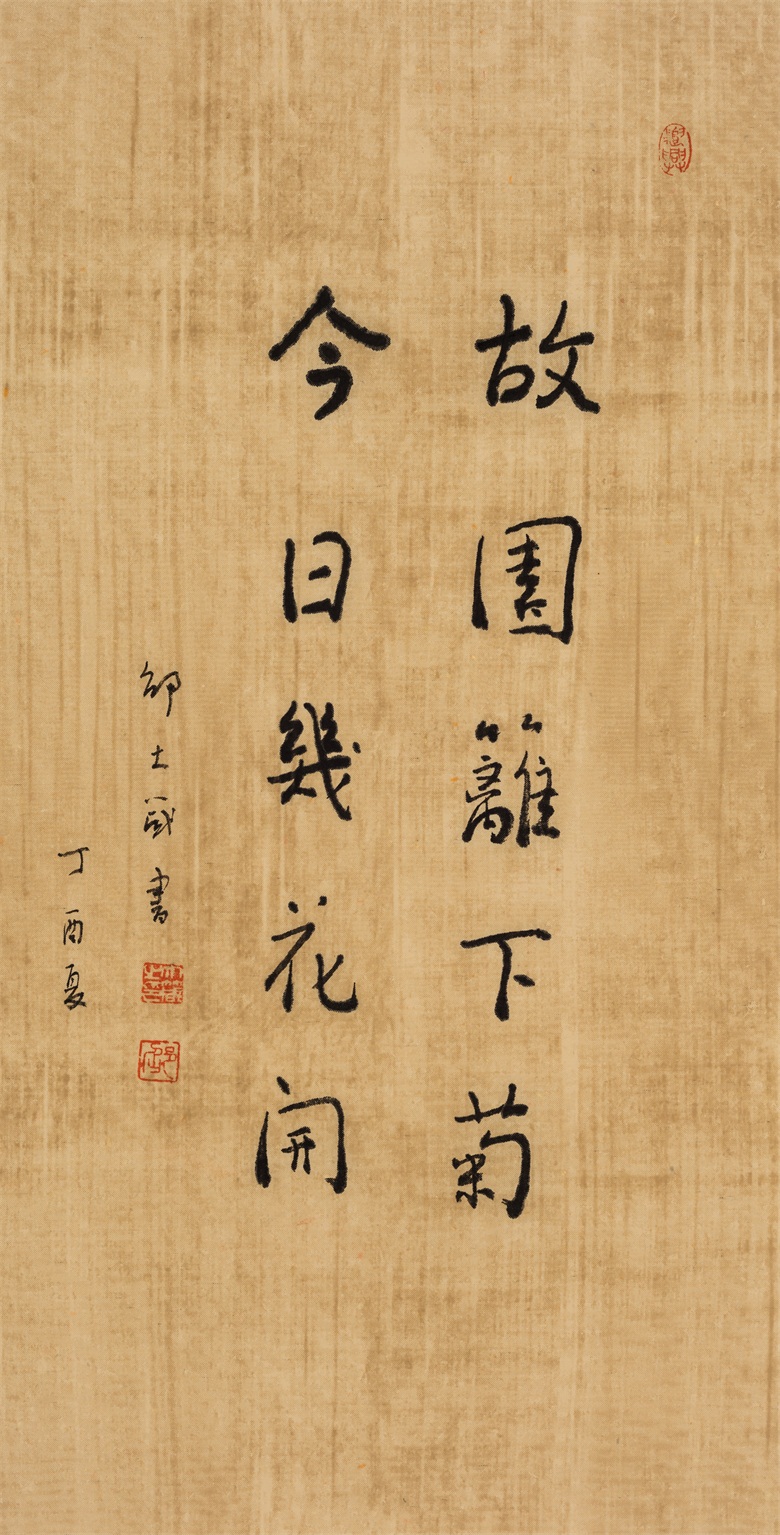 故園籬下菊
今日幾花開
邰士箴書
丁酉夏